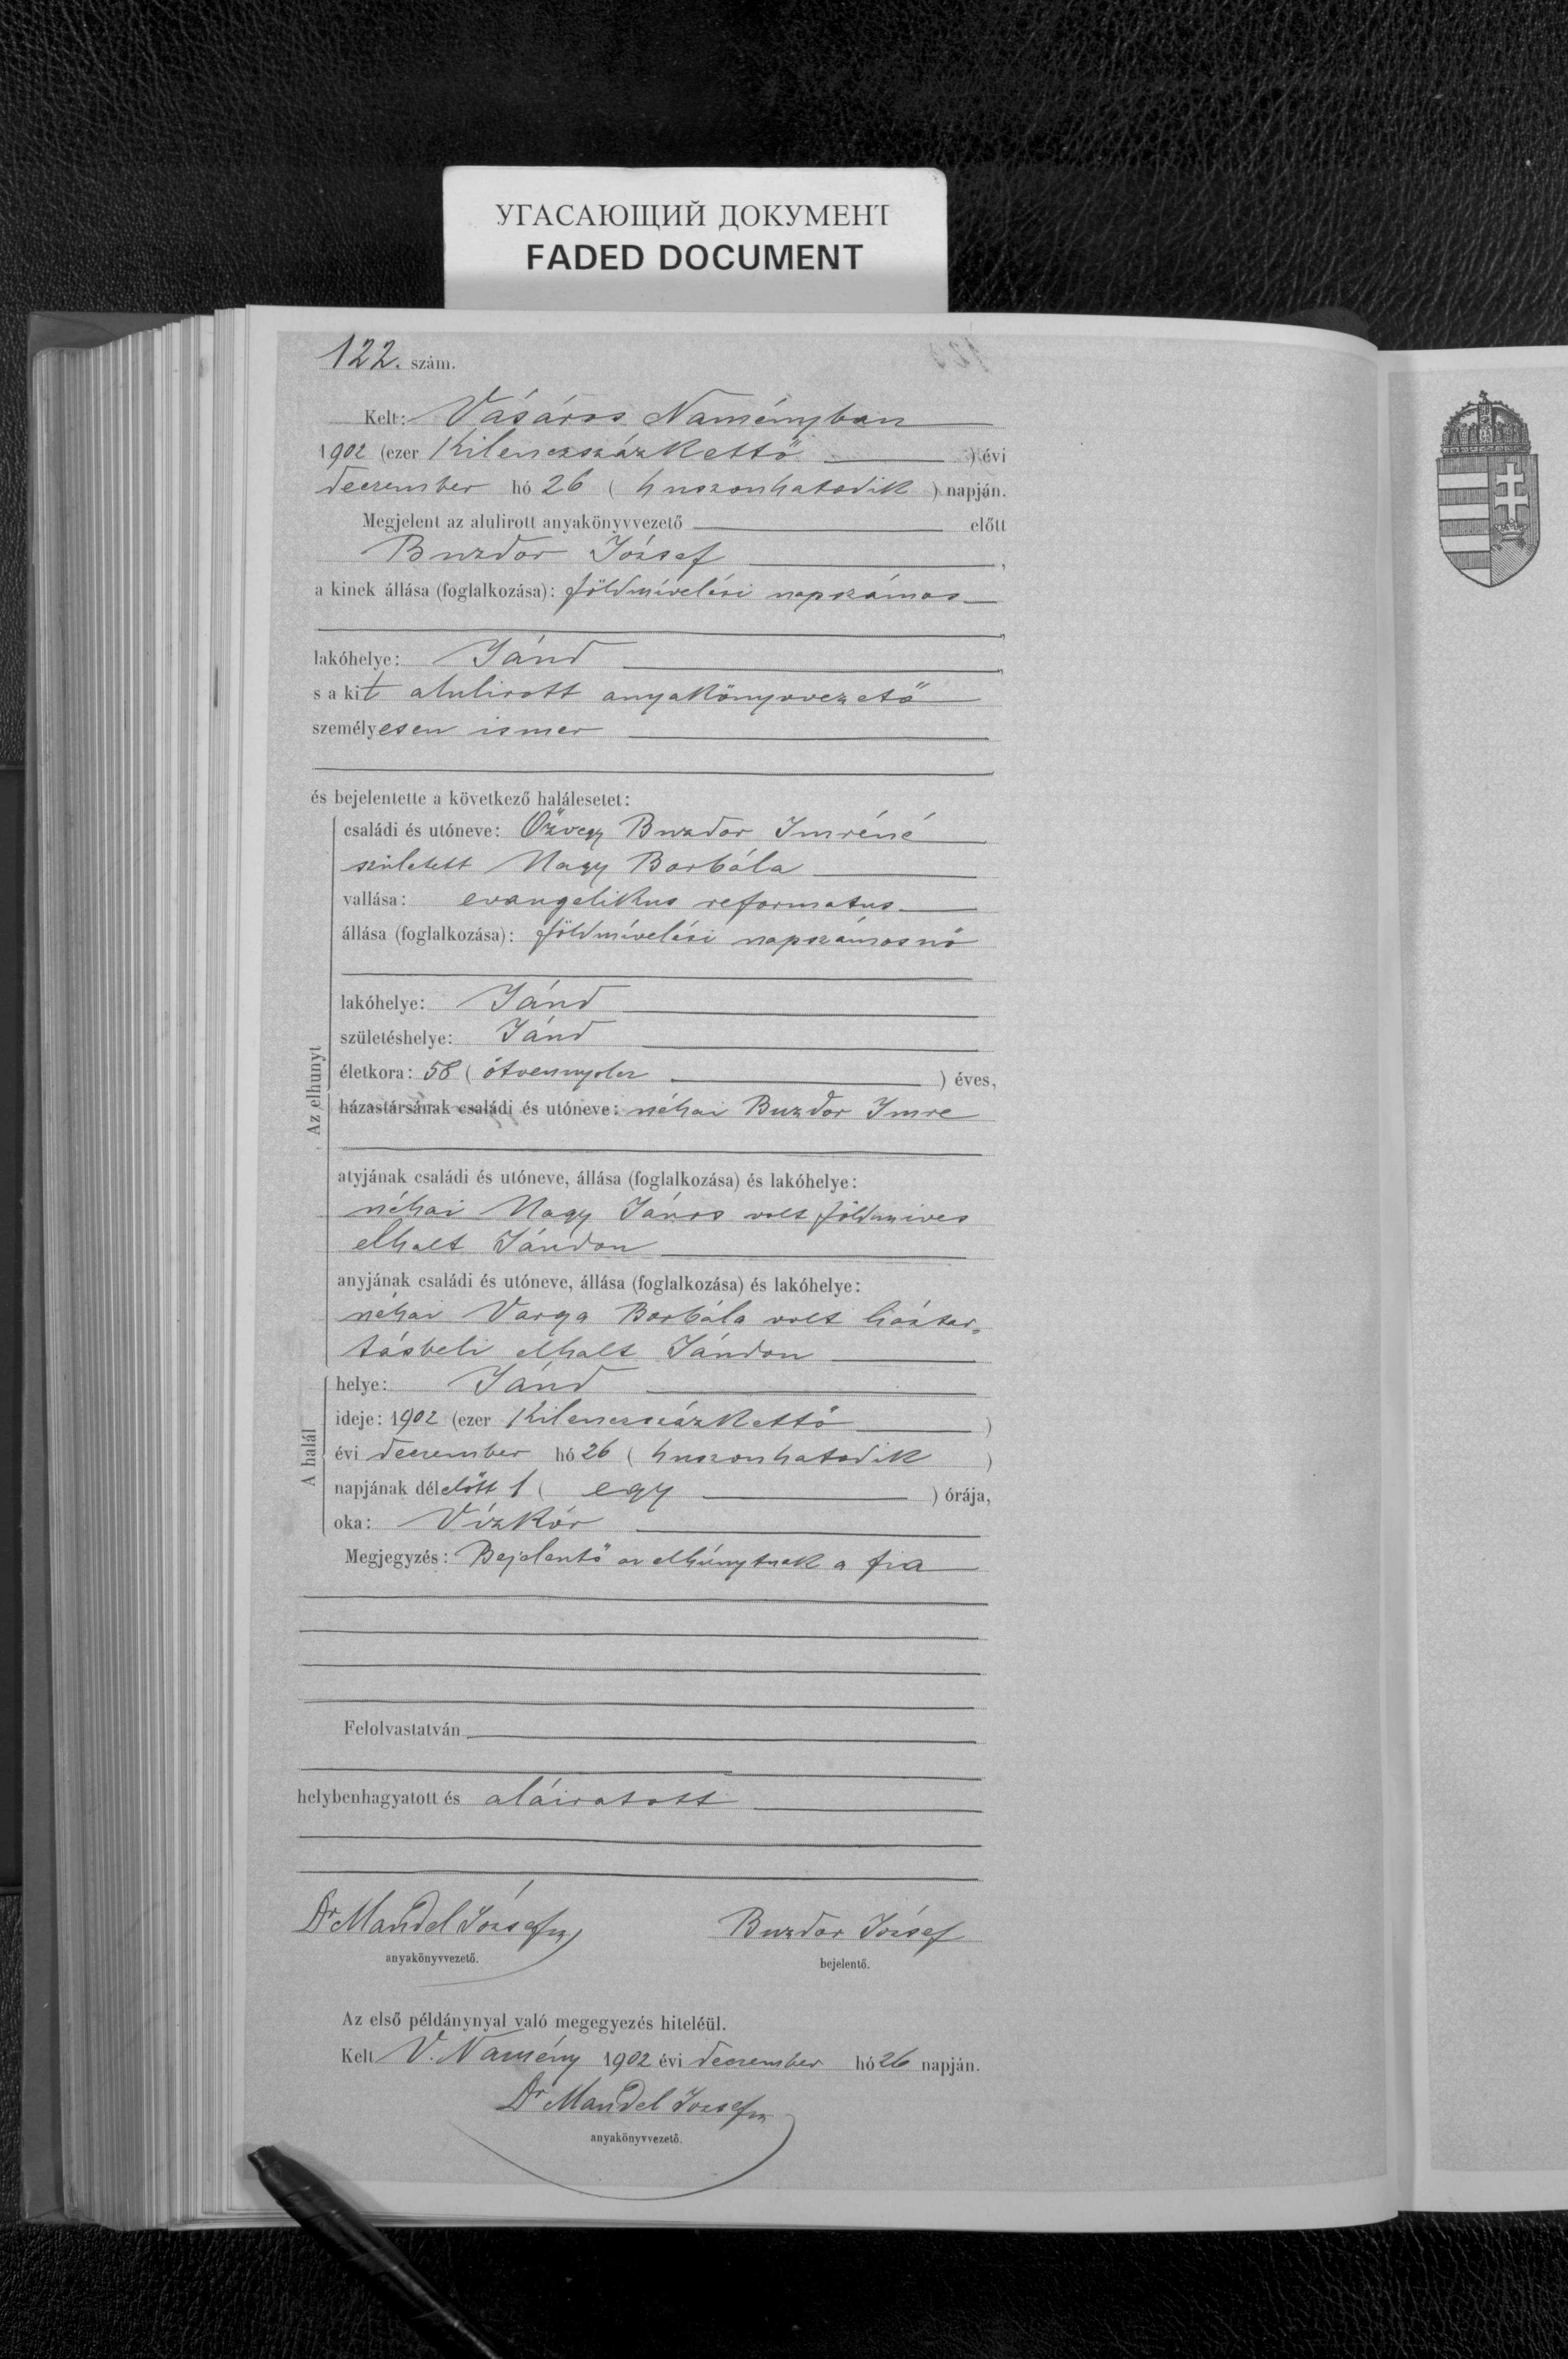 УГАСАЮЩИЙ ДОКУМЕНТ
FADED DOCUMENT
122. szám.
Kelt: Vásáros Naményban
1902 (ezer kilenczszázkettő) évi
deczember hó 26 (huszonhatodik) napján.
Megjelent az alulirott anyakönyvvezető előtt
Buzdor József,
a kinek állása (foglalkozása): földmívelési napszámos
lakóhelye: Jánd
s a kit alulirott anyakönyvvezető
személyesen ismer
és bejelentette a következő halálesetet:
Az elhunyt
családi és utóneve: Özvegy Buzdor Imréné
született Nagy Borbála
vallása: evangelikus reformatus
állása (foglalkozása): földmívelési napszámosnő
lakóhelye: Jánd
születéshelye: Jánd
életkora: 58 (ötvennyolcz) éves,
házastársának családi és utóneve: néhai Buzdor Imre
atyjának családi és utóneve, állása (foglalkozása) és lakóhelye:
néhai Nagy János volt földmives
elhalt Jándon
anyjának családi és utóneve, állása (foglalkozása) és lakóhelye:
néhai Varga Borbála volt háztar-
tásbeli elhalt Jándon
A halál
helye: Jánd
ideje: 1902 (ezer kilenczszázkettő)
évi deczember hó 26 (huszonhatodik)
napjának délelőtt 1 (egy) órája,
oka: Vízkór
Megjegyzés: Bejelentő az elhúnytnak a fia
Felolvastatván
helybenhagyatott és aláiratott
Dr Mandel József
Buzdor József
anyakönyvvezető.
bejelentő.
Az első példánynyal való megegyezés hiteléül.
Kelt V. Namény 1902 évi deczember hó 26 napján.
Dr Mandel József
anyakönyvvezető.